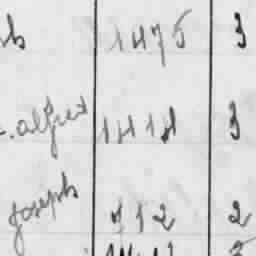 1475 3
alfred 1414 3
Joseph 712 2